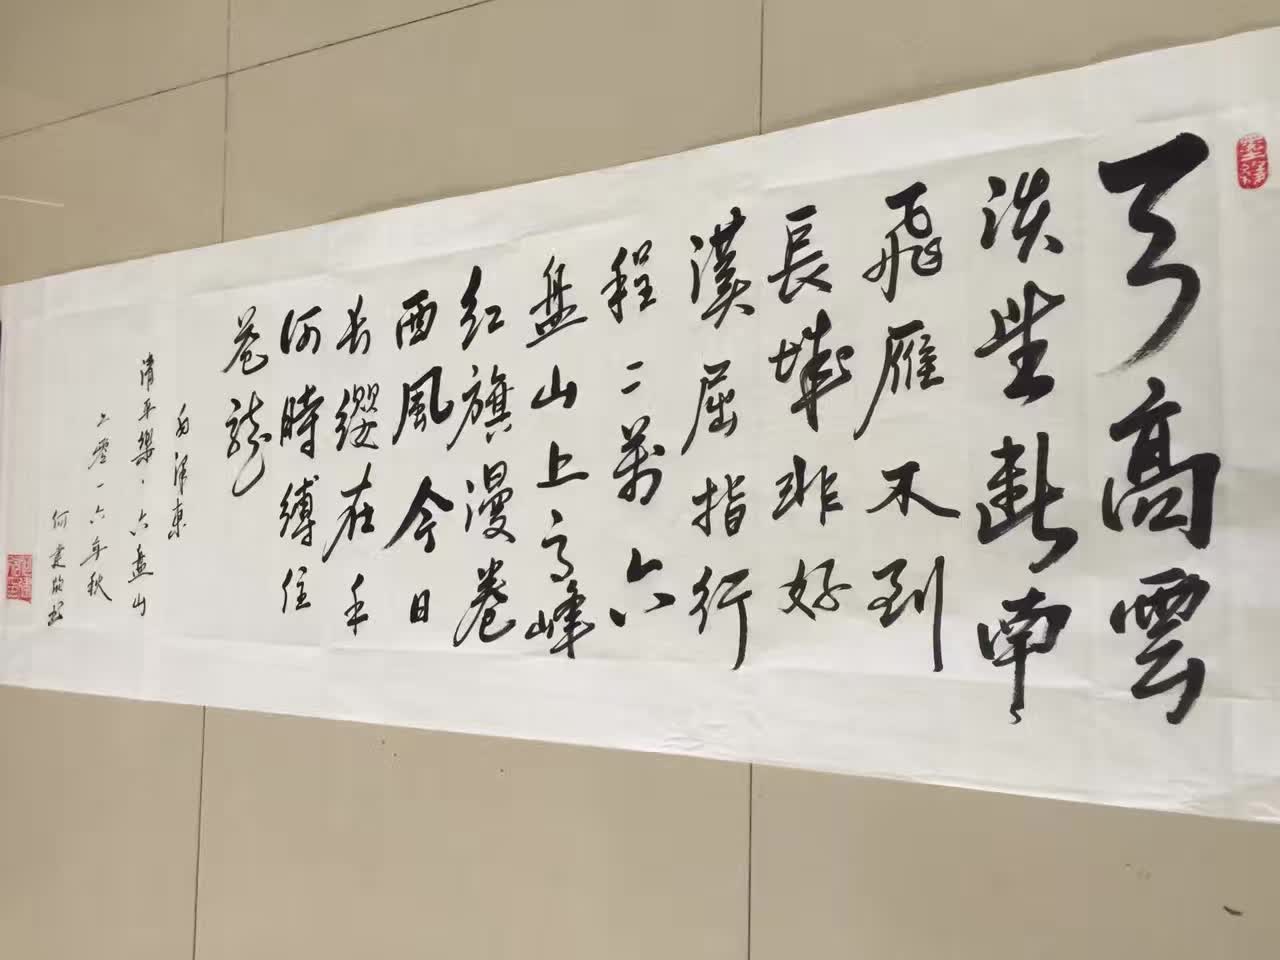 天高雲
淡望斷南
飛雁不到
長城非好
漢屈指行
程二萬六
盘山上高峰
红旗漫卷
西風今日
长缨在手
何時縛住
苍龙
毛泽东
清平樂·六盘山
二零一六年秋
何建书
墨缘